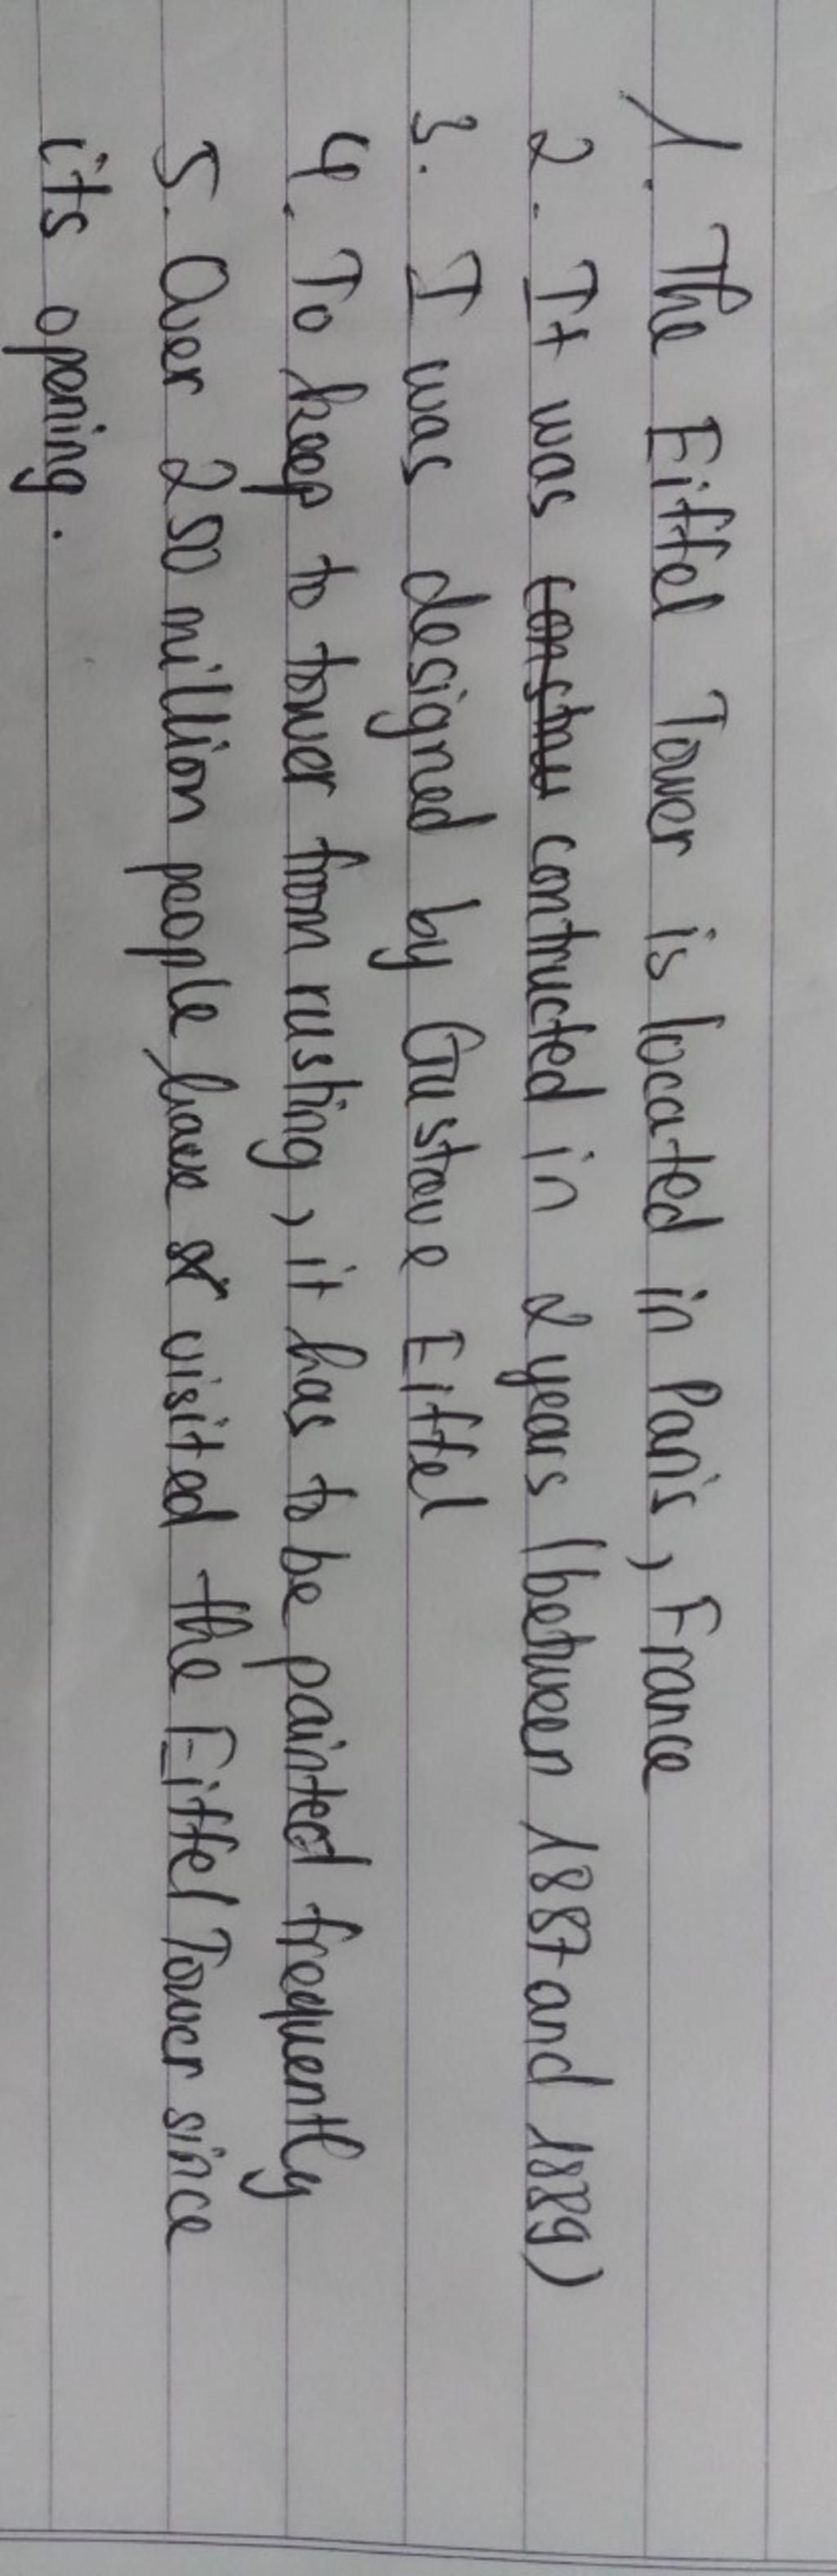 1. The Eiffel Tower is located in Paris, France
2. It was constru contructed in 2 years (between 1887 and 1889)
3. I was designed by Gustave Eiffel
4. To keep to tower from rusting, it has to be painted frequently
5. Over 250 million people have visited the Eiffel Tower since
its opening.